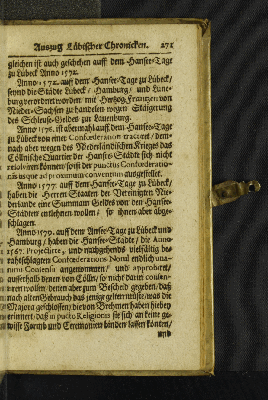 Auszug Lübischer Chronicken. 271
gleichen ist auch geschehen auff dem Hansee-Tage
zu Lübeck Anno 1572.
Anno 1572. auff dem Hansee-Tage zu Lübeck/
seynd die Städte Lübeck / Hamburg / und Lüne-
burg verordnet worden mit Hertzog Frantzen von
Nieder-Sachsen zu handelen wegen Stäigerung
des Schleuse-Geldes zur Lauenburg.
Anno 1576. ist abermahl auff dem Hansee-Tage
zu Lübeck von einer Confœderation tractiret / dem-
nach aber wegen des Niederländischen Krieges das
Cöllnische Quartier der Hansee Städte sich nicht
resolviren können/ so ist der punctus Confœderatio-
nis usque ad proximum conventum ausgestellet.
Anno 1577. auff dem Hansee-Tage zu Lübeck/
haben die Herren Staaten der Vereinigten Nie-
derlande eine Summam Geldes von den Hansee-
Städten entlehnen wollen / so ihnen aber abge-
schlagen.
Anno 1579. auff dem Hansee-Tage zu Lübeck und
Hamburg / haben die Hansee-Städte / die Anno
1567. Projectirte, und nachgehends vielfältig be-
rahtschlagten Confœderations Notul endlich una-
nimi Consensu angenommen / und approbiret/
ausserhalb denen von Cölln/ so nicht darin consen-
tiren wollen/ denen aber zum Bescheid gegeben/ daß
nach alten Gebrauch das jenige gelten müste/ was die
Majora geschlossen/ die von Brehmen haben hiebey
erinnert/ daß in puncto Religionis sie sich an keine ge-
wisse Form und Ceremonien binden lassen könten/
und